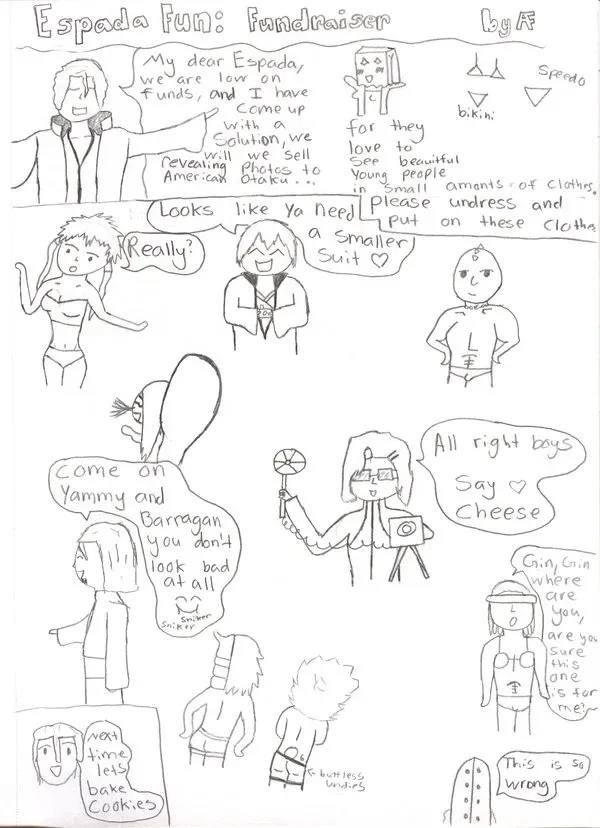 Espada Fun: Fundraiser
by AF
My dear Espada,
we are low on
funds, and I have
come up
with a
Solution, we
will we sell
revealing photos to
American Otaku...
for they
love to
see beauitful
young people
in small amonts of clothes.
bikini
Speedo
please undress and
put on these clothe
Really?
Looks like ya need
a smaller
Suit ♡
All right boys
Say ♡
cheese
Come on
Yammy and
Barragan
you don't
look bad
at all
sniker
sniker
Gin, Gin
where
are
you,
are you
sure
this
one
is for
me?
6
← buttless
undies
Next
time
lets
bake
Cookies
This is so
wrong